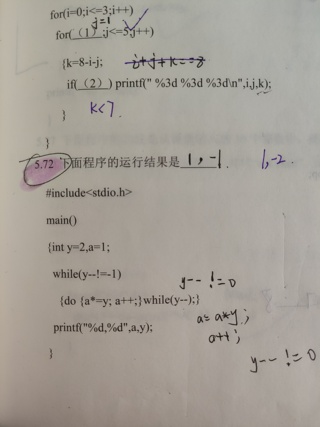 for(i=0;i<=3;i++)
j=1
for(（1）;j<=5;j++)
{k=8-i-j; i+j+k==8
if(（2）) printf(" %3d %3d %3d\n",i,j,k);
} k<7
}
5.72 下面程序的运行结果是 1,-1. 1,-2.
#include<stdio.h>
main()
{int y=2,a=1;
while(y--!=-1) y-- !=0
{do {a*=y; a++;}while(y--);}
printf("%d,%d",a,y); a=a*y;
a++;
} y-- !=0